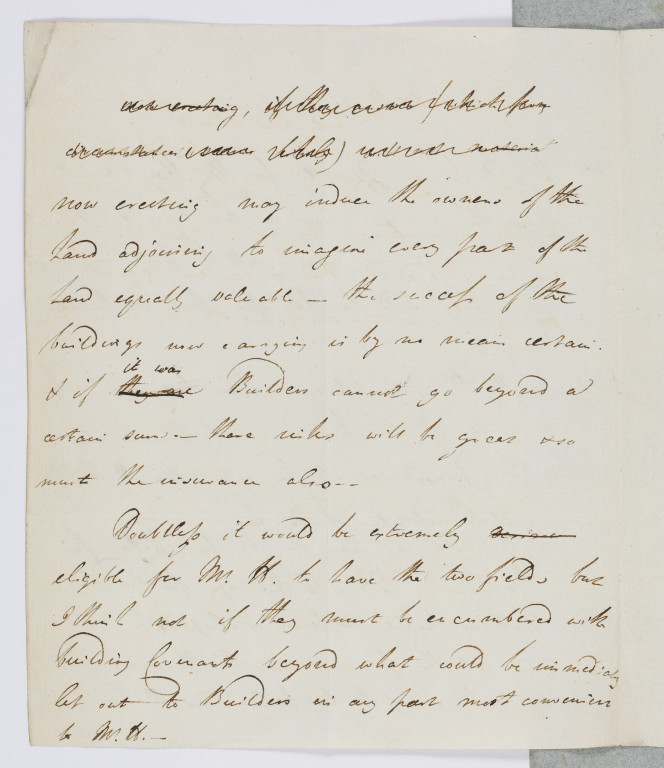 now erecting, if they were (which from
circumstances seems likely)
now erecting may induce the owners of the
Land adjoining to imagine every part of the
Land equally valuable – the success of the
buildings now carrying is by no means certain.
it was
& if they are Builders cannot go beyond a
certain sum – there risks will be great & so
must the insurance also --
Doubtless it would be extremely
eligible for Mr. H. to have the two fields but
I think not if they must be encumbered with
building Covenants beyond what could be immediately
let out to Builders in any part most convenient
to Mr. H. –